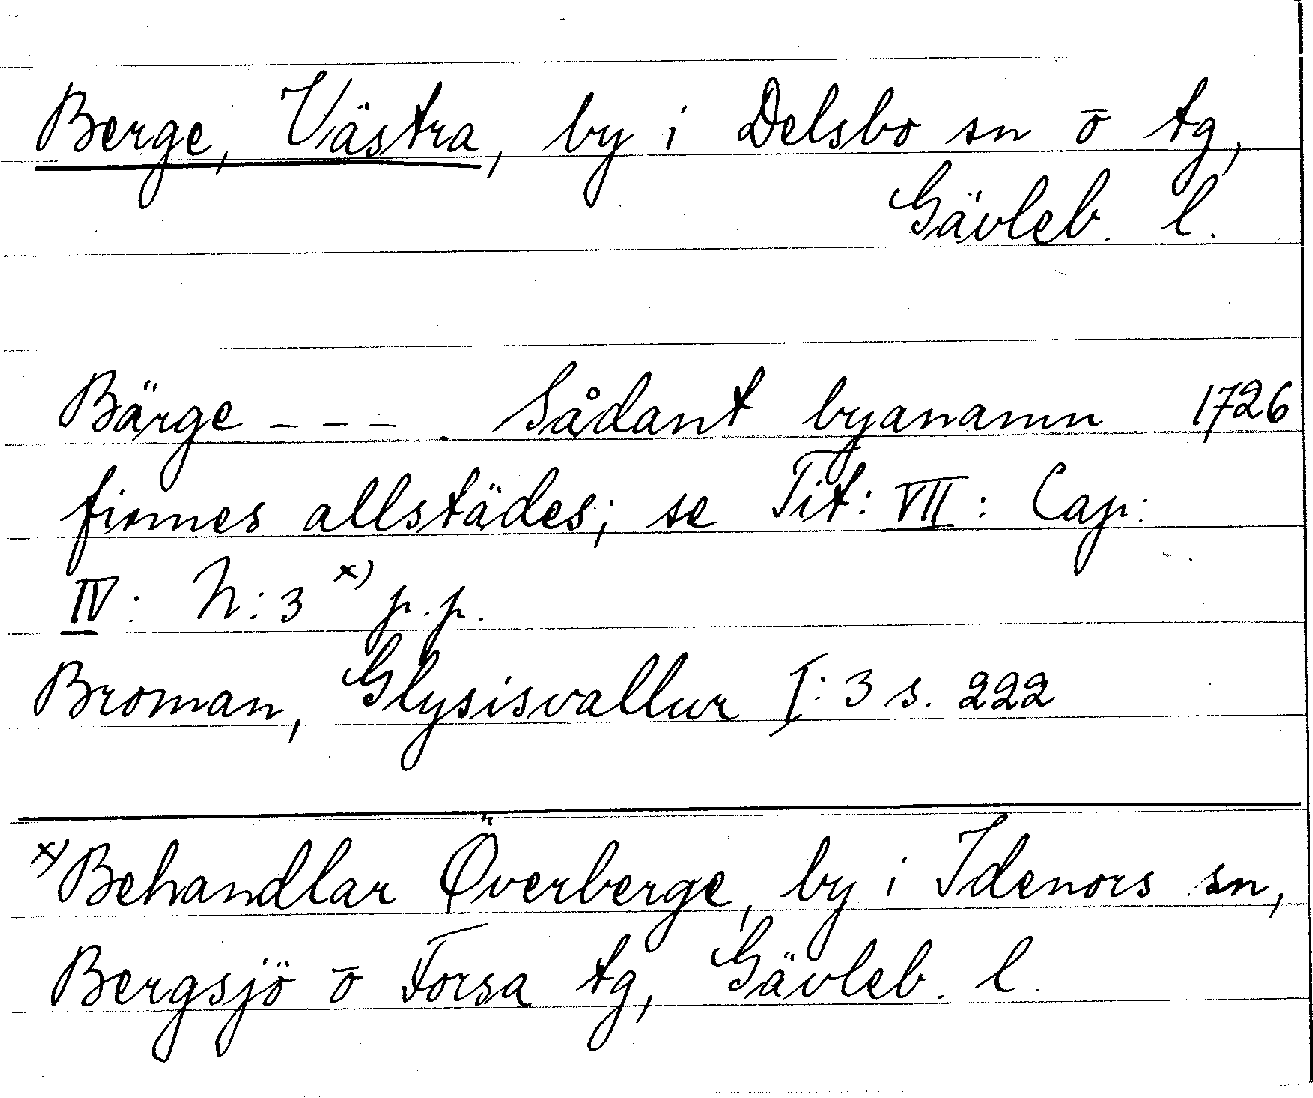 Berge, Västra, by i Delsbo sn o tg,
Gävleb. l.
Bärge - - - . Sådant byanamn 1726
finnes allstädes; se Tit: VII: Cap:
IV: N:3 x) p.p.
Broman, Glysisvallur I:3 s. 222
x) Behandlar Överberge, by i Idenors sn,
Bergsjö o Forsa tg, Gävleb. l.